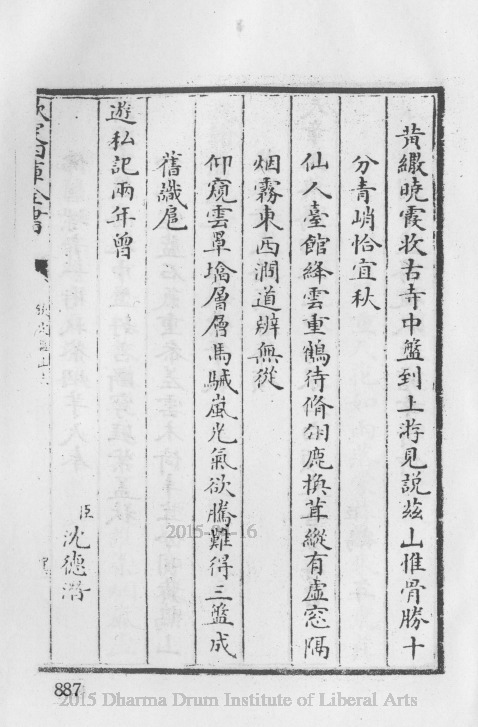 黄纈曉霞收古寺中盤到上游見説兹山惟骨勝十
分青峭恰宜秋
仙人臺館絳雲重鶴待脩翎鹿換茸縱有虚窓隔
烟霧東西澗道辧無從
仰窺雲罩墖層層馬駴嵐光氣欲騰難得三盤成
舊識扈
遊私記兩年曾
臣沈德潛
欽定四庫全書
887
2015-01-16
2015 Dharma Drum Institute of Liberal Arts